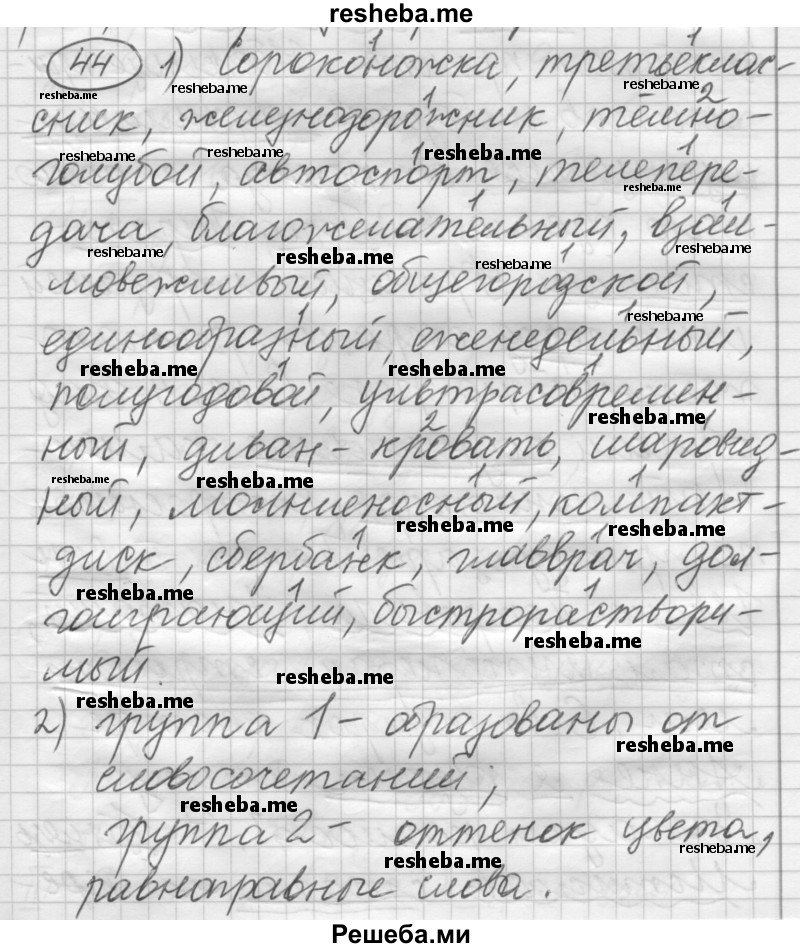 resheba.me
44 1) Сороконожка, третьеклас-
сник, железнодорожник, тёмно-
голубой, автоспорт, телепере-
дача, благожелательный, взаи-
мовежливый, общегородской,
единообразный, еженедельный,
полугодовой, ультрасовремен-
ный, диван-кровать, шаровид-
ный, молниеносный, компакт-
диск, сбербанк, главврач, дол-
гоиграющий, быстрораствори-
мый.
2) группа 1 – образованы от
словосочетаний;
группа 2 – оттенок цвета,
равноправные слова.
Решеба.ми